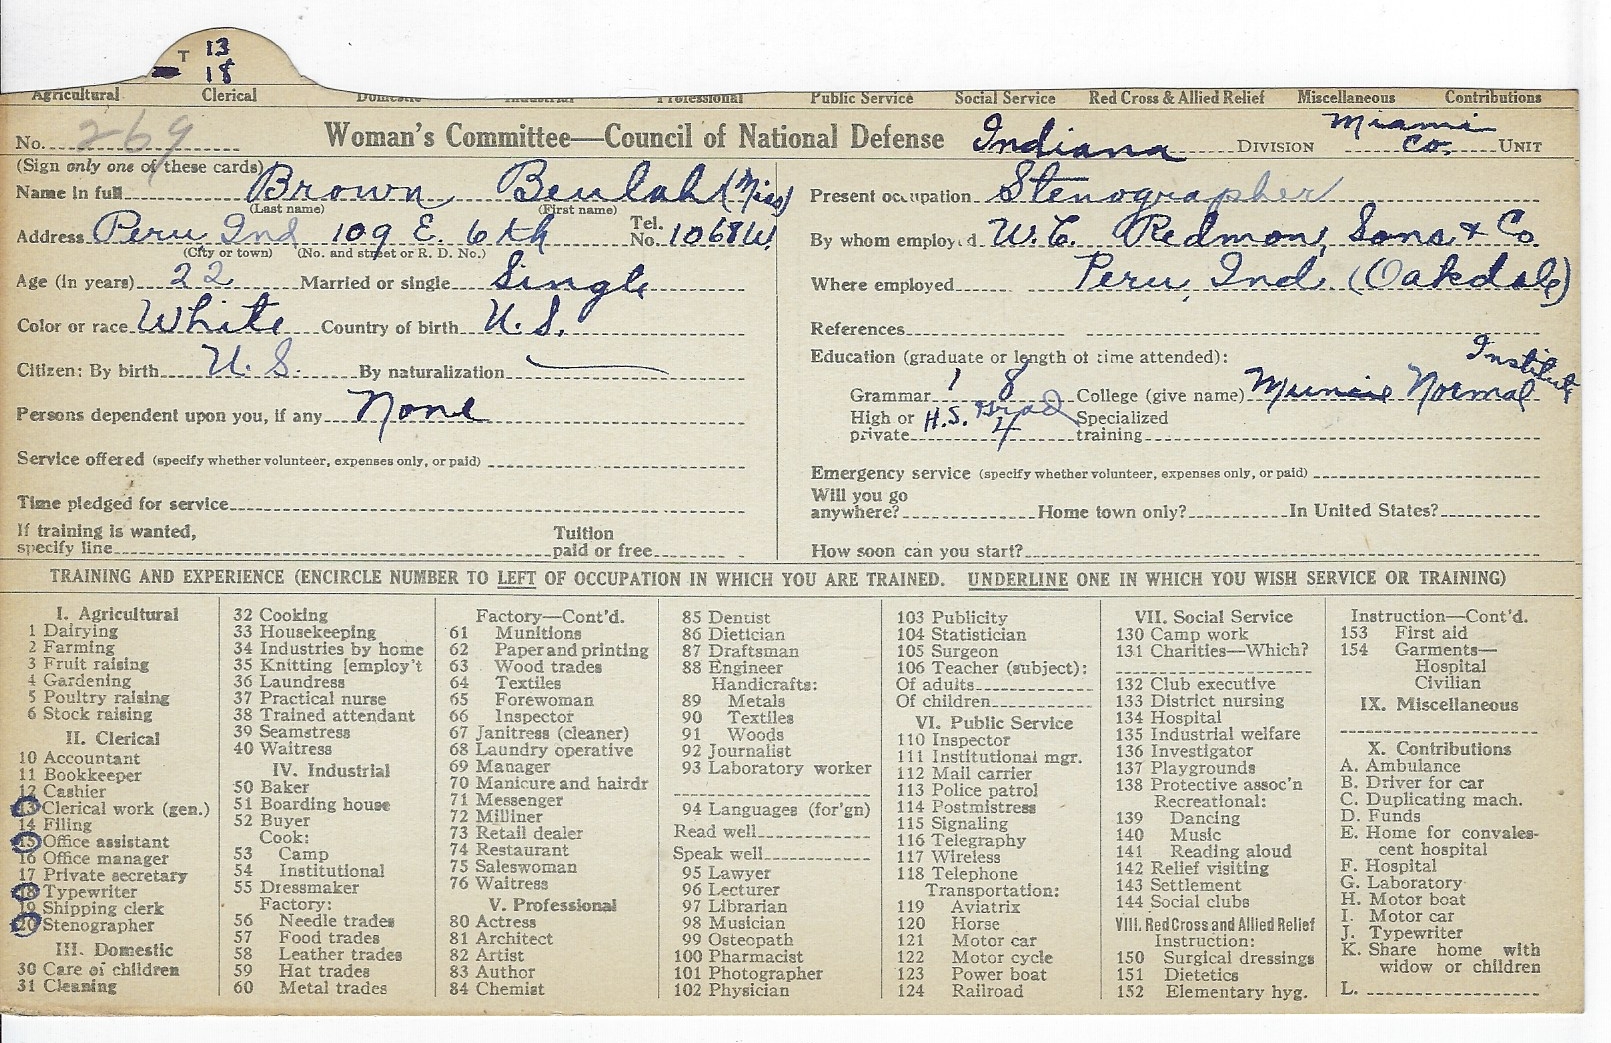 T 13
18
Agricultural Clerical Domestic Industrial Professional Public Service Social Service Red Cross & Allied Relief Miscellaneous Contributions
No. 269 Woman's Committee—Council of National Defense Indiana DIVISION Miami Co. UNIT
(Sign only one of these cards)
Name in full Brown Beulah (Miss)
(Last name) (First name)
Address Peru Ind 109 E. 6th Tel. No. 1068W.
(City or town) (No. and street or R. D. No.)
Age (in years) 22 Married or single Single
Color or race White Country of birth U.S.
Citizen: By birth U. S. By naturalization
Persons dependent upon you, if any None
Service offered (specify whether volunteer, expenses only, or paid)
Time pledged for service
If training is wanted, specify line Tuition paid or free
Present occupation Stenographer
By whom employed W.C. Redmon, Sons & Co
Where employed Peru, Ind. (Oakdale)
References
Education (graduate or length of time attended):
Grammar 1 8 College (give name) Muncie Normal Institute
High or private H.S. Grad 4 Specialized training
Emergency service (specify whether volunteer, expenses only, or paid)
Will you go anywhere? Home town only? In United States?
How soon can you start?
TRAINING AND EXPERIENCE (ENCIRCLE NUMBER TO LEFT OF OCCUPATION IN WHICH YOU ARE TRAINED. UNDERLINE ONE IN WHICH YOU WISH SERVICE OR TRAINING)
I. Agricultural
1 Dairying
2 Farming
3 Fruit raising
4 Gardening
5 Poultry raising
6 Stock raising
II. Clerical
10 Accountant
11 Bookkeeper
12 Cashier
13 Clerical work (gen.)
14 Filing
15 Office assistant
16 Office manager
17 Private secretary
18 Typewriter
19 Shipping clerk
20 Stenographer
III. Domestic
30 Care of children
31 Cleaning
32 Cooking
33 Housekeeping
34 Industries by home
35 Knitting [employ't
36 Laundress
37 Practical nurse
38 Trained attendant
39 Seamstress
40 Waitress
IV. Industrial
50 Baker
51 Boarding house
52 Buyer
Cook:
53 Camp
54 Institutional
55 Dressmaker
Factory:
56 Needle trades
57 Food trades
58 Leather trades
59 Hat trades
60 Metal trades
Factory—Cont'd.
61 Munitions
62 Paper and printing
63 Wood trades
64 Textiles
65 Forewoman
66 Inspector
67 Janitress (cleaner)
68 Laundry operative
69 Manager
70 Manicure and hairdr
71 Messenger
72 Milliner
73 Retail dealer
74 Restaurant
75 Saleswoman
76 Waitress
V. Professional
80 Actress
81 Architect
82 Artist
83 Author
84 Chemist
85 Dentist
86 Dietician
87 Draftsman
88 Engineer
Handicrafts:
89 Metals
90 Textiles
91 Woods
92 Journalist
93 Laboratory worker
94 Languages (for'gn)
Read well
Speak well
95 Lawyer
96 Lecturer
97 Librarian
98 Musician
99 Osteopath
100 Pharmacist
101 Photographer
102 Physician
103 Publicity
104 Statistician
105 Surgeon
106 Teacher (subject):
Of adults
Of children
VI. Public Service
110 Inspector
111 Institutional mgr.
112 Mail carrier
113 Police patrol
114 Postmistress
115 Signaling
116 Telegraphy
117 Wireless
118 Telephone
Transportation:
119 Aviatrix
120 Horse
121 Motor car
122 Motor cycle
123 Power boat
124 Railroad
VII. Social Service
130 Camp work
131 Charities—Which?
132 Club executive
133 District nursing
134 Hospital
135 Industrial welfare
136 Investigator
137 Playgrounds
138 Protective assoc'n
Recreational:
139 Dancing
140 Music
141 Reading aloud
142 Relief visiting
143 Settlement
144 Social clubs
VIII. Red Cross and Allied Relief
Instruction:
150 Surgical dressings
151 Dietetics
152 Elementary hyg.
Instruction—Cont'd.
153 First aid
154 Garments—
Hospital
Civilian
IX. Miscellaneous
X. Contributions
A. Ambulance
B. Driver for car
C. Duplicating mach.
D. Funds
E. Home for convales-
cent hospital
F. Hospital
G. Laboratory
H. Motor boat
I. Motor car
J. Typewriter
K. Share home with
widow or children
L.